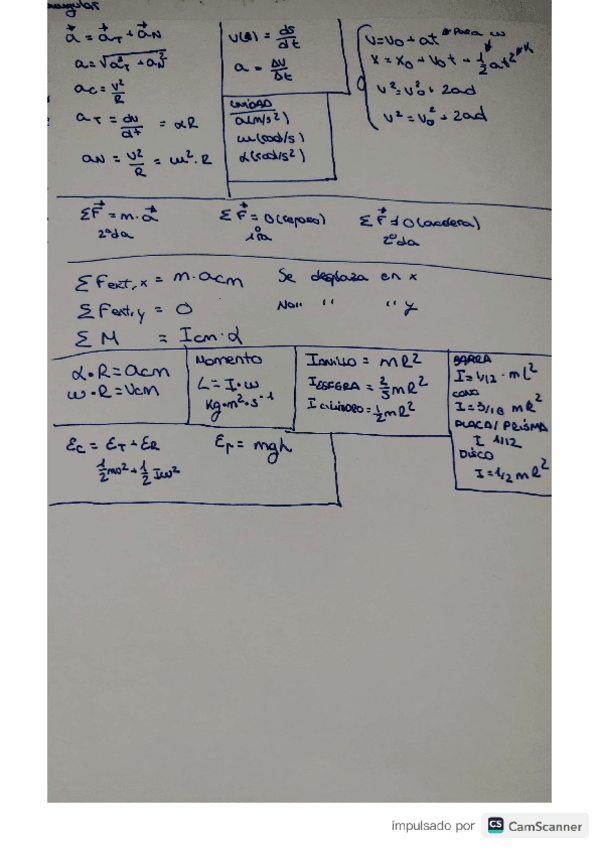 angular
a⃗ = a⃗T + a⃗N
a = √(aT² + aN²)
ac = v²/R
aT = dv/dt = αR
aN = v²/R = ω²·R
v(t) = ds/dt
a = Δv/Δt
UNIDAD
a(m/s²)
ω(rad/s)
α(rad/s²)
v = v0 + at
Para ω
x = x0 + v0t + 1/2 at²
v² = v0² + 2ad
v² = v0² + 2ad
ΣF⃗ = m·a⃗
2ºda
ΣF⃗ = 0 (reposo)
1ª
ΣF⃗ ≠ 0 (acelera)
2ºda
ΣFext,x = m·acm Se desplaza en x
ΣFext,y = 0 No " " " y
ΣM = Icm·α
α·R = acm
ω·R = Vcm
Momento
L = I·ω
Kg·m²·s⁻¹
IANILLO = mR²
IESFERA = 2/5 mR²
ICILINDRO = 1/2 mR²
BARRA
I = 1/12 · mL²
CONO
I = 3/10 mR²
PLACA/PRISMA
I 1/12
DISCO
I = 1/2 mR²
Ec = ET + ER
1/2 mv² + 1/2 Iω²
Ep = mgh
impulsado por CS CamScanner